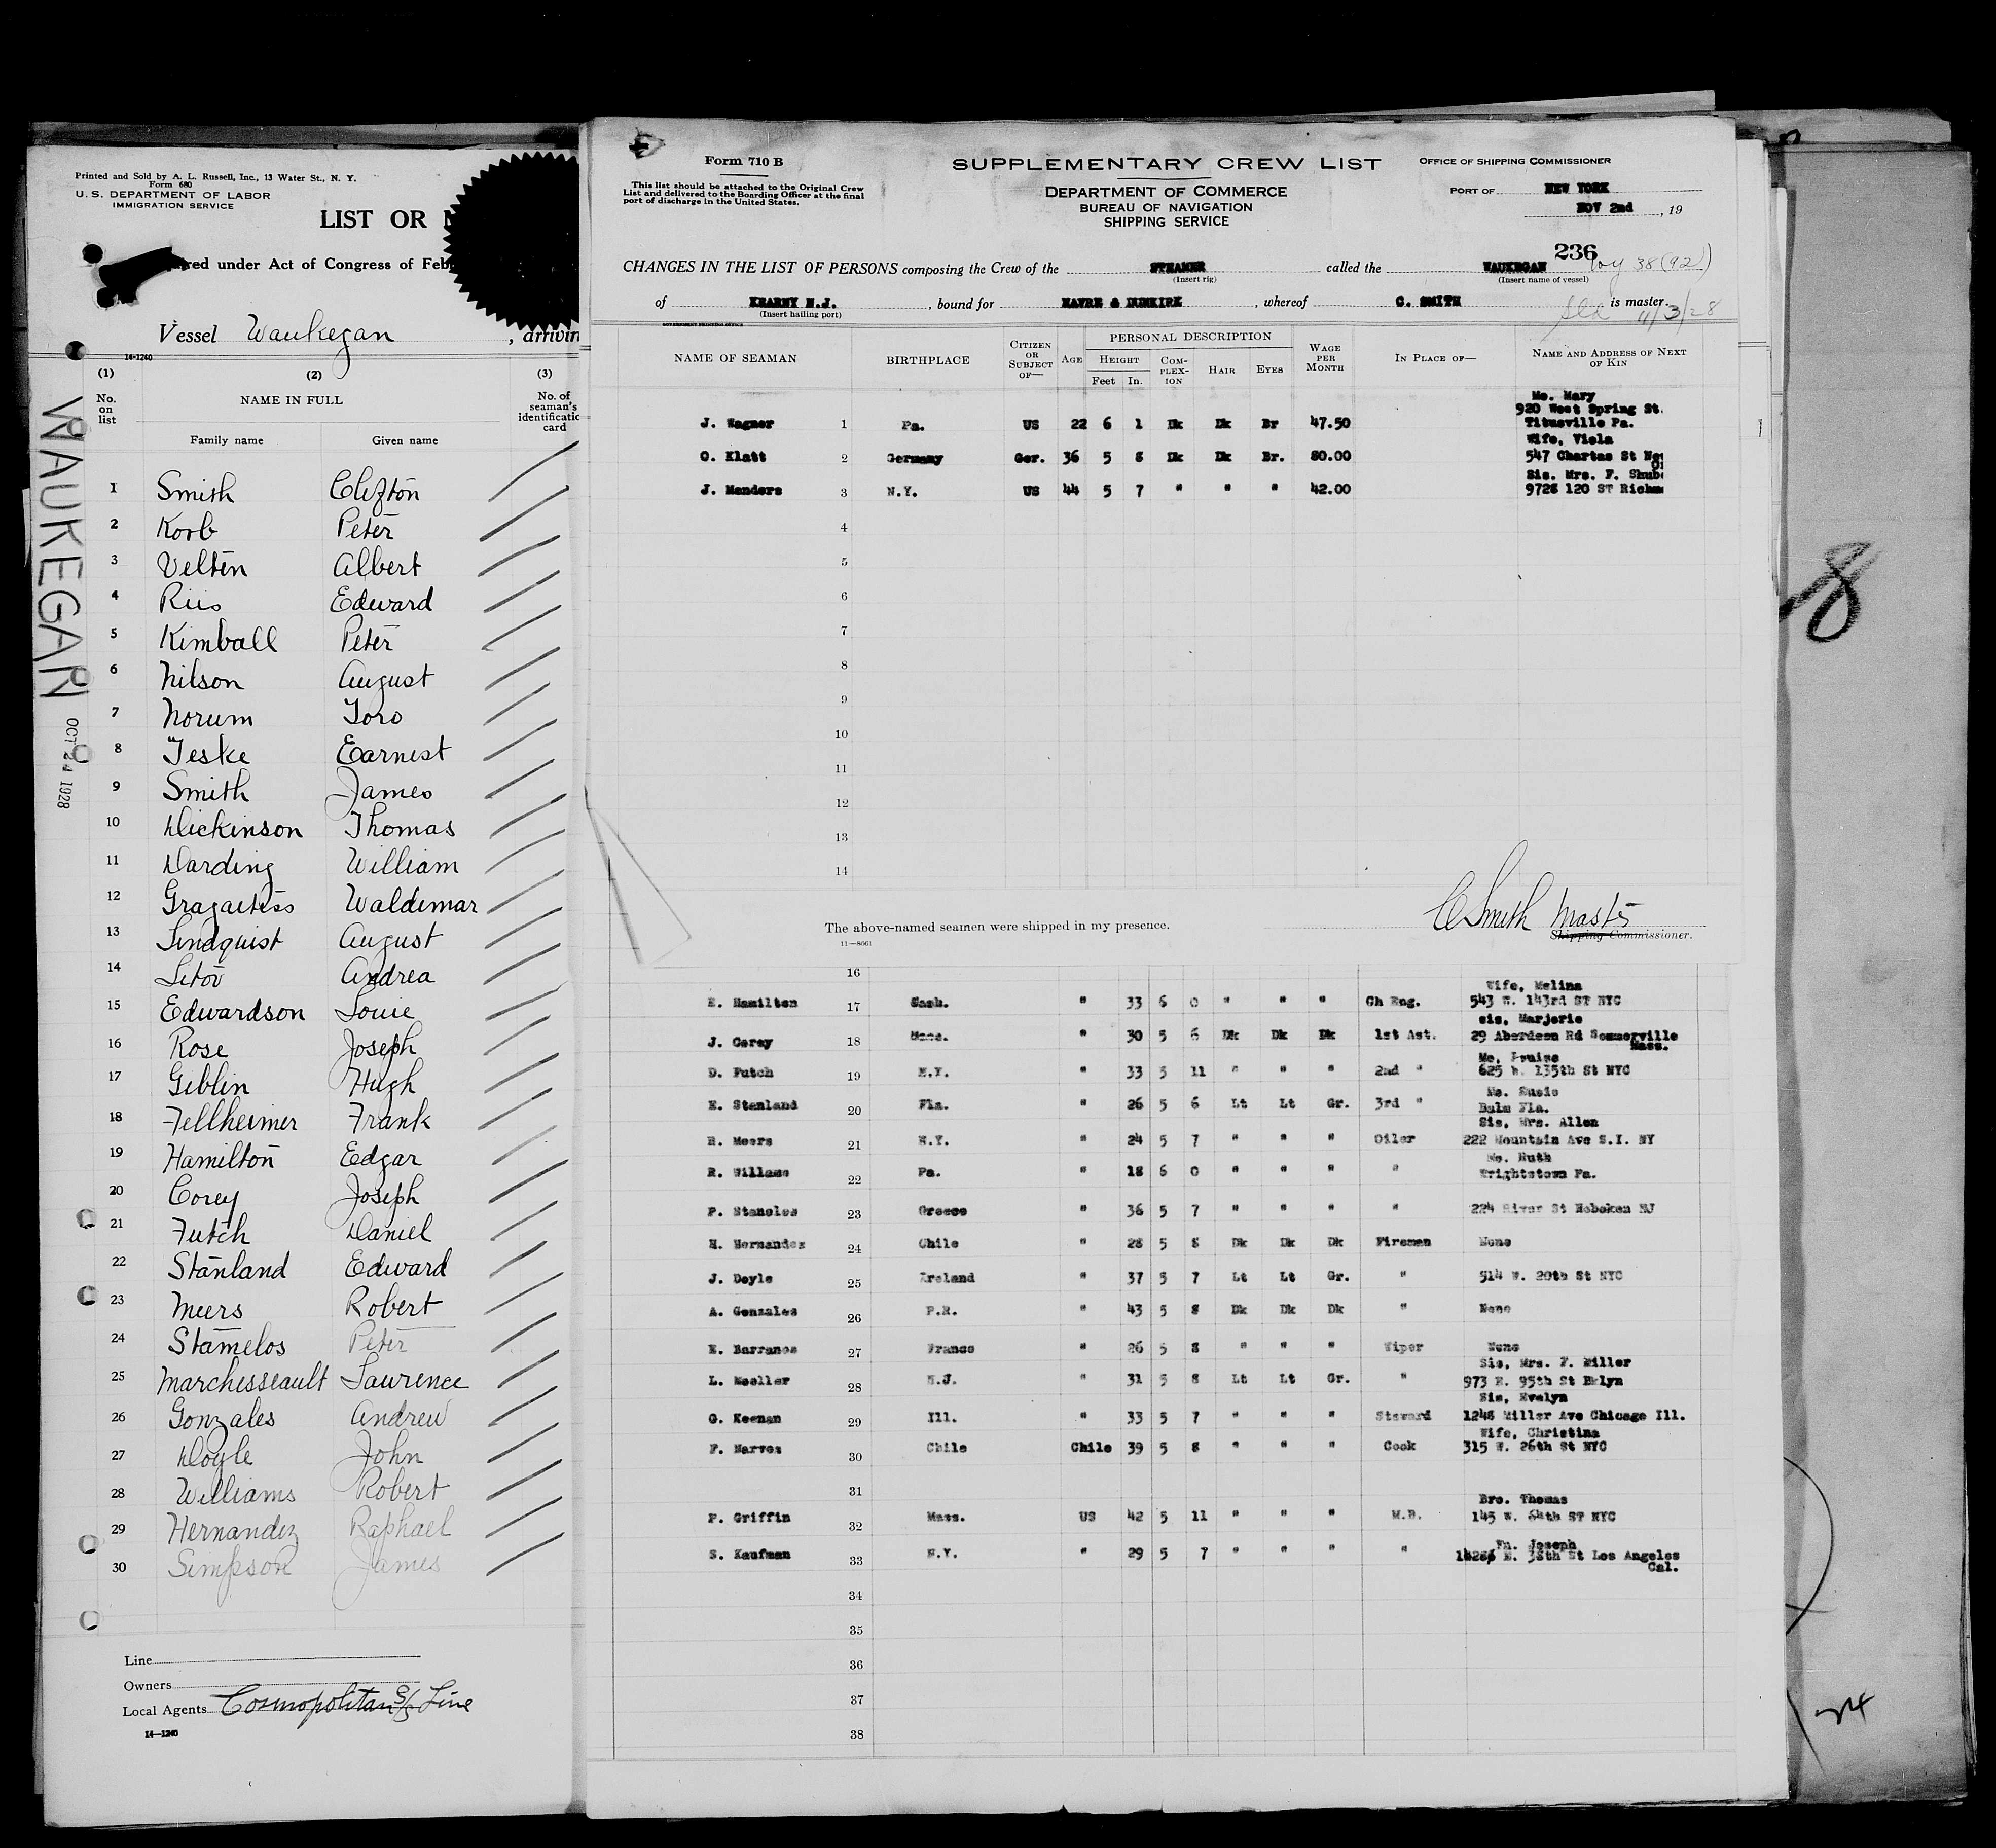 Printed and Sold by A. L. Russell, Inc., 13 Water St., N. Y.
Form 680
U. S. DEPARTMENT OF LABOR
IMMIGRATION SERVICE
LIST OR
red under Act of Congress of Feb
Vessel Waukegan , arrivin
14-1240
(1) (2) (3)
No. on list
NAME IN FULL
No. of seaman's identificatio card
Family name Given name
WAUKEGAN
OCT 24 1928
1 Smith Clifton
2 Korb Peter
3 Velten Albert
4 Riis Edward
5 Kimball Peter
6 Nilson August
7 Norum Toro
8 Teske Earnest
9 Smith James
10 Dickinson Thomas
11 Darding William
12 Waldemar
13 Lindquist August
14 Litov Andrea
15 Edwardson Louie
16 Rose Joseph
17 Giblin Hugh
18 Fellheimer Frank
19 Hamilton Edgar
20 Corey Joseph
21 Futch Daniel
22 Stanland Edward
23 Meers Robert
24 Stamelos Peter
25 Marchesseault Laurence
26 Gonzales Andrew
27 Doyle John
28 Williams Robert
29 Hernandez Raphael
30 Simpson James
Line
Owners
Local Agents Cosmopolitan S/S Line
14-1240
Form 710 B
This list should be attached to the Original Crew
List and delivered to the Boarding Officer at the final
port of discharge in the United States.
SUPPLEMENTARY CREW LIST
DEPARTMENT OF COMMERCE
BUREAU OF NAVIGATION
SHIPPING SERVICE
OFFICE OF SHIPPING COMMISSIONER
PORT OF NEW YORK
NOV 2nd , 19
236
Voy 38 (92)
CHANGES IN THE LIST OF PERSONS composing the Crew of the STEAMER called the WAUKEGAN
(Insert rig) (Insert name of vessel)
of KEARNY N.J. , bound for HAVRE & DUNKIRK , whereof C. SMITH is master.
(Insert hailing port)
Sld 11/3/28
GOVERNMENT PRINTING OFFICE
NAME OF SEAMAN
BIRTHPLACE
CITIZEN OR SUBJECT OF—
AGE
PERSONAL DESCRIPTION
HEIGHT
Feet In.
COM-PLEX-ION
HAIR
EYES
WAGE PER MONTH
IN PLACE OF—
NAME AND ADDRESS OF NEXT OF KIN
Mo. Mary
920 West Spring St.
J. Wagner 1 Pa. US 22 6 1 Dk Dk Br 47.50 Titusville Pa.
Wife, Viola
O. Klatt 2 Germany Ger. 36 5 8 Dk Dk Br. 80.00 547 Chartas St
Sis. Mrs. F. Shub
J. Manders 3 N.Y. US 44 5 7 " " " 42.00 9728 120 ST Richm
4
5
6
7
8
9
10
11
12
13
14
C Smith Master
The above-named seamen were shipped in my presence.
Shipping Commissioner.
11—8661
16
Wife, Melina
E. Hamilton 17 " 33 6 0 " " " Ch Eng. 543 W. 143rd ST NYC
sis, Marjorie
J. Corey 18 Mass. " 30 5 6 Dk Dk Dk 1st Ast. 29 Aberdeen Rd Sommerville
Mass.
D. Futch 19 N.Y. " 33 5 11 " " " 2nd " 625 W. 135th St NYC
Mo. Susie
E. Stanland 20 Fla. " 26 5 6 Lt Lt Gr. 3rd " Balm Fla.
Sis, Mrs. Allen
R. Meers 21 N.Y. " 24 5 7 " " " Oiler 222 Mountain Ave S.I. NY
Mo. Ruth
R. Willams 22 Pa. " 18 6 0 " " " " Wrightstown Pa.
P. Stamelos 23 Greece " 36 5 7 " " " " 224 River St Hoboken NJ
H. Hernandez 24 Chile " 28 5 8 Dk Dk Dk Fireman None
J. Doyle 25 Ireland " 37 5 7 Lt Lt Gr. " 514 W. 20th St NYC
A. Gonzales 26 P.R. " 43 5 8 Dk Dk Dk " None
E. Barranos 27 France " 26 5 8 " " " Wiper None
Sis, Mrs. F. Miller
L. Moeller 28 N.J. " 31 5 8 Lt Lt Gr. " 973 E. 95th St Bklyn
Sis, Evelyn
G. Keenan 29 Ill. " 33 5 7 " " " Steward 1248 Miller Ave Chicago Ill.
Wife, Christina
F. Narvez 30 Chile Chile 39 5 8 " " " Cook 315 W. 26th St NYC
31
Bro. Thomas
P. Griffin 32 Mass. US 42 5 11 " " " M.B. 145 W. 64th ST NYC
Fa. Joseph
S. Kaufman 33 N.Y. " 29 5 7 " " " " E. 38th St Los Angeles
Cal.
34
35
36
37
38
8
24